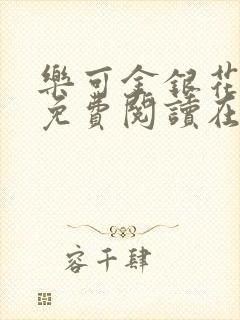 樂可金銀花
免費閱讀在
容千肆